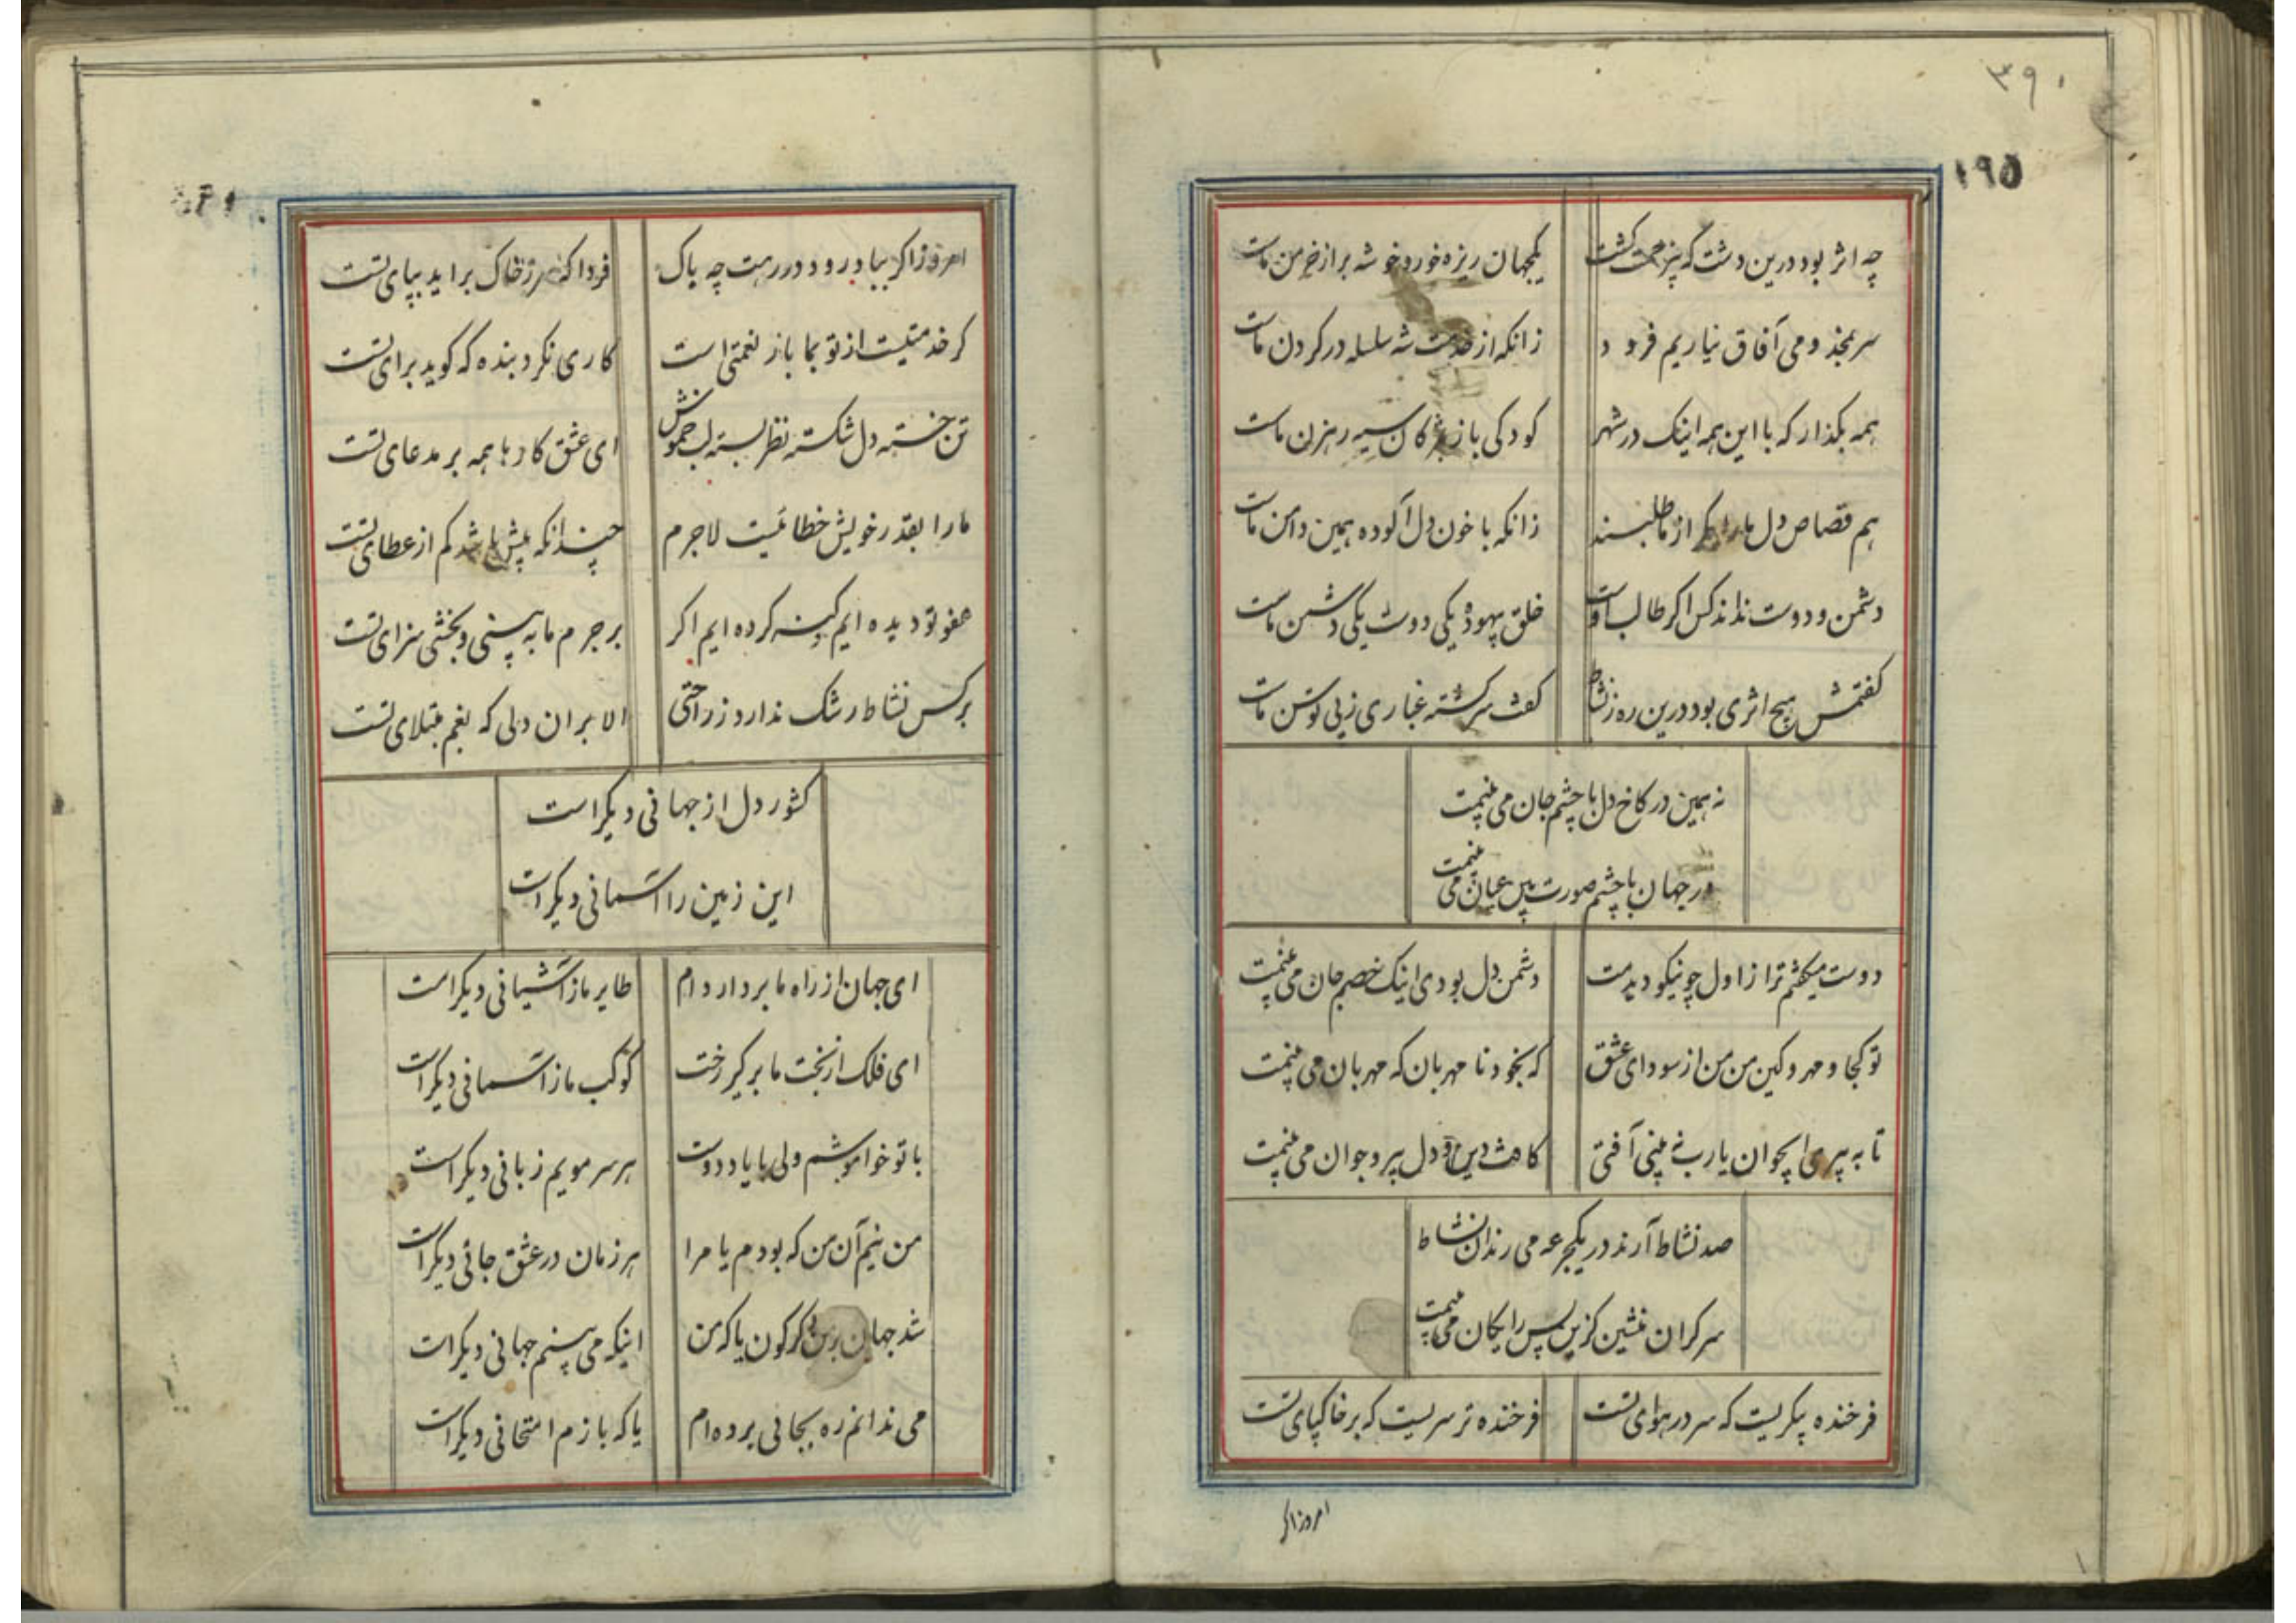 ۳۹۰
۱۹۵
چه اثر بود درین دشت که بر کشت
یکجهان ریزه خور و خوشه بر از خرمن ماست
سر بمخدومی آفاق نیاریم فرود
زانکه از خدمت شه سلسله در کردن ماست
همه بکذار که با این همه اینک در شهر
کودکی با مژکان سیه رهزن ماست
هم قصاص دل ما را مکر از ما طلبند
زانکه با خون دل آلوده همین دامن ماست
دشمن و دوست نداند کس اکر طالب اوست
خلق بیهوده یکی دوست یکی دشمن ماست
کفتمش هیچ اثری بود درین ره ز نشاط
کفت سرکشته غباری ز پی توسن ماست
نه همین در کاخ دل با چشم جان می بینمت
در جهان با چشم صورت بین عیان می بینمت
دوست میکفتم ترا ز اول چو نیکو دیدمت
دشمن دل بودی اینک خصم جان می بینمت
تو کجا و مهر و کین من من از سودای عشق
که بخود نا مهربان که مهربان می بینمت
تا به پیری ایجوان یارب نه بینی آفتی
کافت دین و دل پیر و جوان می بینمت
صد نشاط آرند در یکجرعه می رندان نشاط
سرکران منشین کزین پس رایکان می بینمت
فرخنده پیکریست که سر در هوای تست
فرخنده تر سریست که بر خاکپای تست
امروز اکر
امروز اکر بباد رود در رهت چه باک
فردا که سر ز خاک براید بپای تست
کر خدمتیست از تو بما باز نعمتی است
کاری نکرد بنده که کوید برای تست
تن خسته دل شکسته نظر بسته لب خموش
ای عشق کارها همه بر مدعای تست
ما را بقدر خویش خطائیست لاجرم
چندانکه بیش باشد کم از عطای تست
عفو تو دیده ایم کنه کرده ایم اکر
بر جرم ما به بینی و بخشی سزای تست
بر کس نشاط رشک ندارد ز راحتی
الا بر ان دلی که بغم مبتلای تست
کشور دل از جهانی دیکر است
این زمین را اسمانی دیکر است
ای جهان از راه ما بردار دام
طایر ما ز آشیانی دیکر است
ای فلک از بخت ما بر کیر رخت
کوکب ما ز اسمانی دیکر است
با تو خواموشم ولی با یاد دوست
هر سر مویم زبانی دیکر است
من نیم آن من که بودم یا مرا
هر زمان در عشق جانی دیکر است
شد جهان بر من دکرکون یا که من
اینکه می بینم جهانی دیکر است
می ندانم ره بجائی برده ام
یا که بازم امتحانی دیکر است